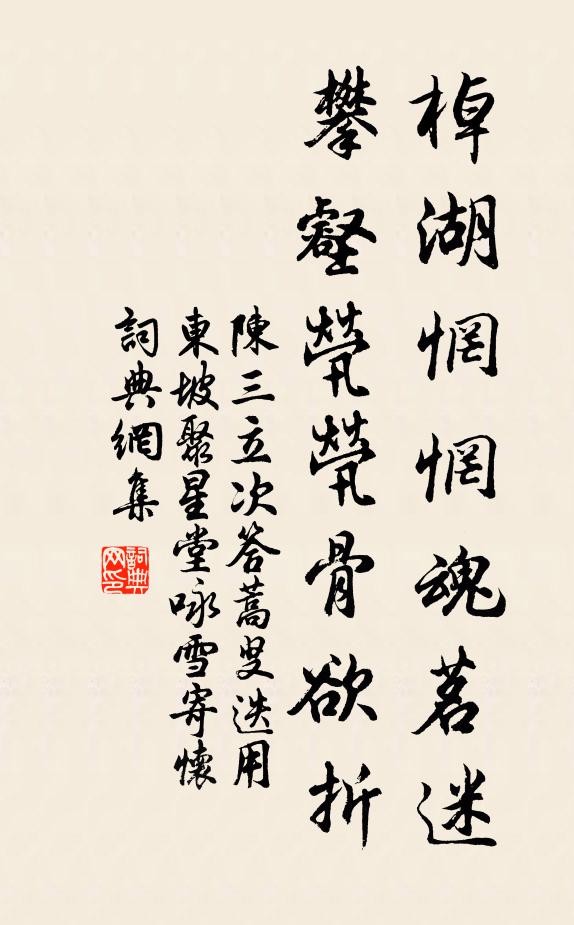 棹湖惘惘魂茗迷
攀壑煢煢骨欲折
陳三立次答蒿叟迭用
東坡聚星堂咏雪寄懷
詞典網集
詞典网印